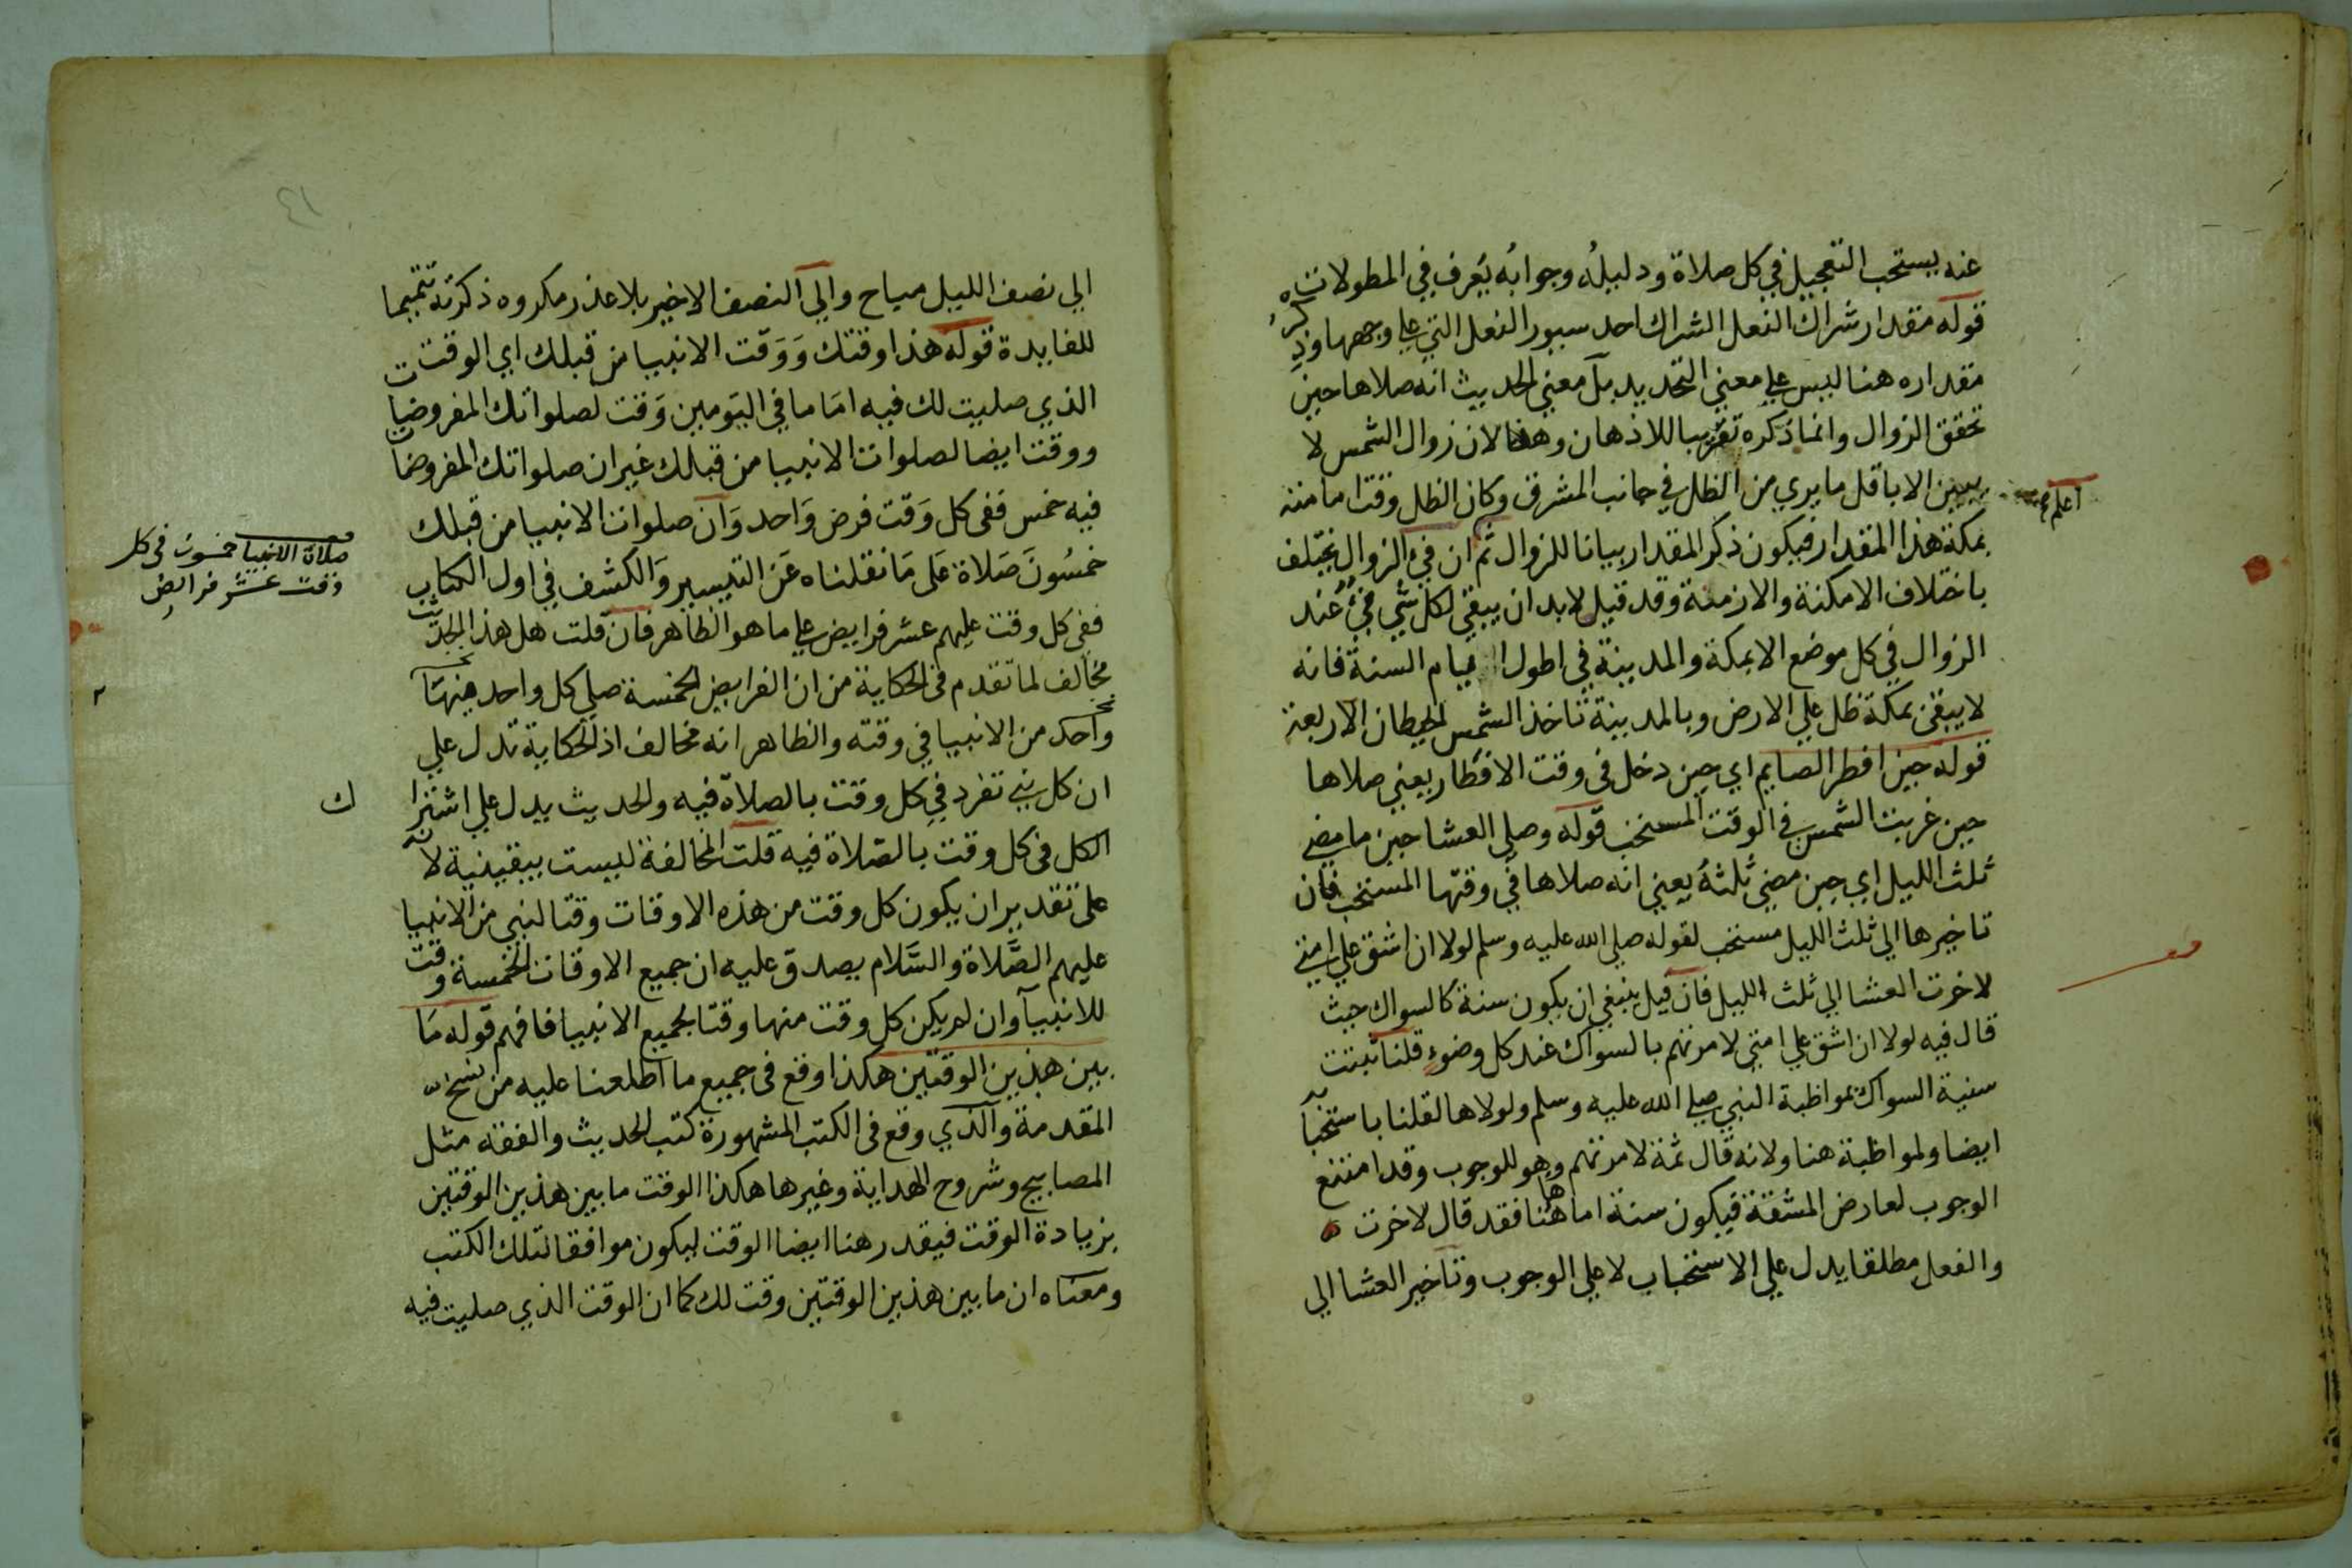 عنه يستحب التعجيل في كل صلاة ودليله وجوابه يعرف في المطولات
قوله مقدار شراك النعل الشراك احد سيور النعل التي علي وجهها وذكره
مقداره هنا ليس علي معني التحديد بل معني الحديث انه صلاها حين
تحقق الزوال وانما ذكره تقريبا للاذهان وهذا لان زوال الشمس لا
يبين الا باقل ما يري من الظل في جانب المشرق وكان الظل وقت امامته
اعلم
بمكة هذا المقدار فيكون ذكر المقدار بيانا للزوال ثم ان فئ الزوال يختلف
باختلاف الامكنة والازمنة وقد قيل لابد ان يبقي لكل شي فئ عند
الزوال في كل موضع الا بمكة والمدينة في اطول ايام السنة فانه
لا يبقي بمكة ظل علي الارض وبالمدينة تاخذ الشمس الحيطان الاربعة
قوله حين افطر الصايم اي حين دخل في وقت الافطار يعني صلاها
حين غربت الشمس في الوقت المستحب قوله وصلي العشا حين ما مضي
ثلث الليل اي حين مضي ثلثه يعني انه صلاها في وقتها المستحب فان
تاخيرها الي ثلث الليل مستحب لقوله صلي الله عليه وسلم لولا ان اشق علي امتي
لاخرت العشا الي ثلث الليل فان قيل ينبغي ان يكون سنة كالسواك حيث
قال فيه لولا ان اشق علي امتي لامرتهم بالسواك عند كل وضوء قلنا ثبتت
سنية السواك بمواظبة النبي صلي الله عليه وسلم ولولاها لقلنا باستحبابه
ايضا ولا مواظبة هنا ولانه قال ثمة لامرتهم وهو للوجوب وقد امتنع
الوجوب لعارض المشقة فيكون سنة اما هاهنا فقد قال لاخرت
والفعل مطلقا يدل علي الاستحباب لا علي الوجوب وتاخير العشا الي
٤١
الي نصف الليل مباح والي النصف الاخير بلا عذر مكروه ذكرته تتميما
للفايدة قوله هذا وقتك ووقت الانبيا من قبلك اي الوقت
الذي صليت لك فيه اماما في اليومين وقت لصلواتك المفروضات
ووقت ايضا لصلوات الانبيا من قبلك غير ان صلواتك المفروضات
فيه خمس ففي كل وقت فرض واحد وان صلوات الانبيا من قبلك
خمسون صلاة علي ما نقلناه عن التيسير والكشف في اول الكتاب
صلاة الانبيا خمسون في كل
وقت عشر فرايض
ففي كل وقت عليهم عشر فرايض علي ما هو الظاهر فان قلت هل هذا الحديث
مخالف لما تقدم في الحكاية من ان الفرايض الخمسة صلي كل واحد منها
واحد من الانبيا في وقته والظاهر انه مخالف اذ الحكاية تدل علي
ان كل نبي تفرد في كل وقت بالصلاة فيه والحديث يدل علي اشترا
ك
الكل في كل وقت بالصلاة فيه قلت المخالفة ليست بيقينية لانه
علي تقدير ان يكون كل وقت من هذه الاوقات وقتا لنبي من الانبيا
عليهم الصلاة والسلام يصدق عليه ان جميع الاوقات الخمسة وقت
للانبيا وان لم يكن كل وقت منها وقتا لجميع الانبيا فافهم قوله ما
بين هذين الوقتين هكذا وقع في جميع ما اطلعنا عليه من نسخ
المقدمة والذي وقع في الكتب المشهورة كتب الحديث والفقه مثل
المصابيح وشروح الهداية وغيرها هكذا الوقت ما بين هذين الوقتين
بزيادة الوقت فيقدر هنا ايضا الوقت ليكون موافقا لتلك الكتب
ومعناه ان ما بين هذين الوقتين وقت لك كما ان الوقت الذي صليت فيه